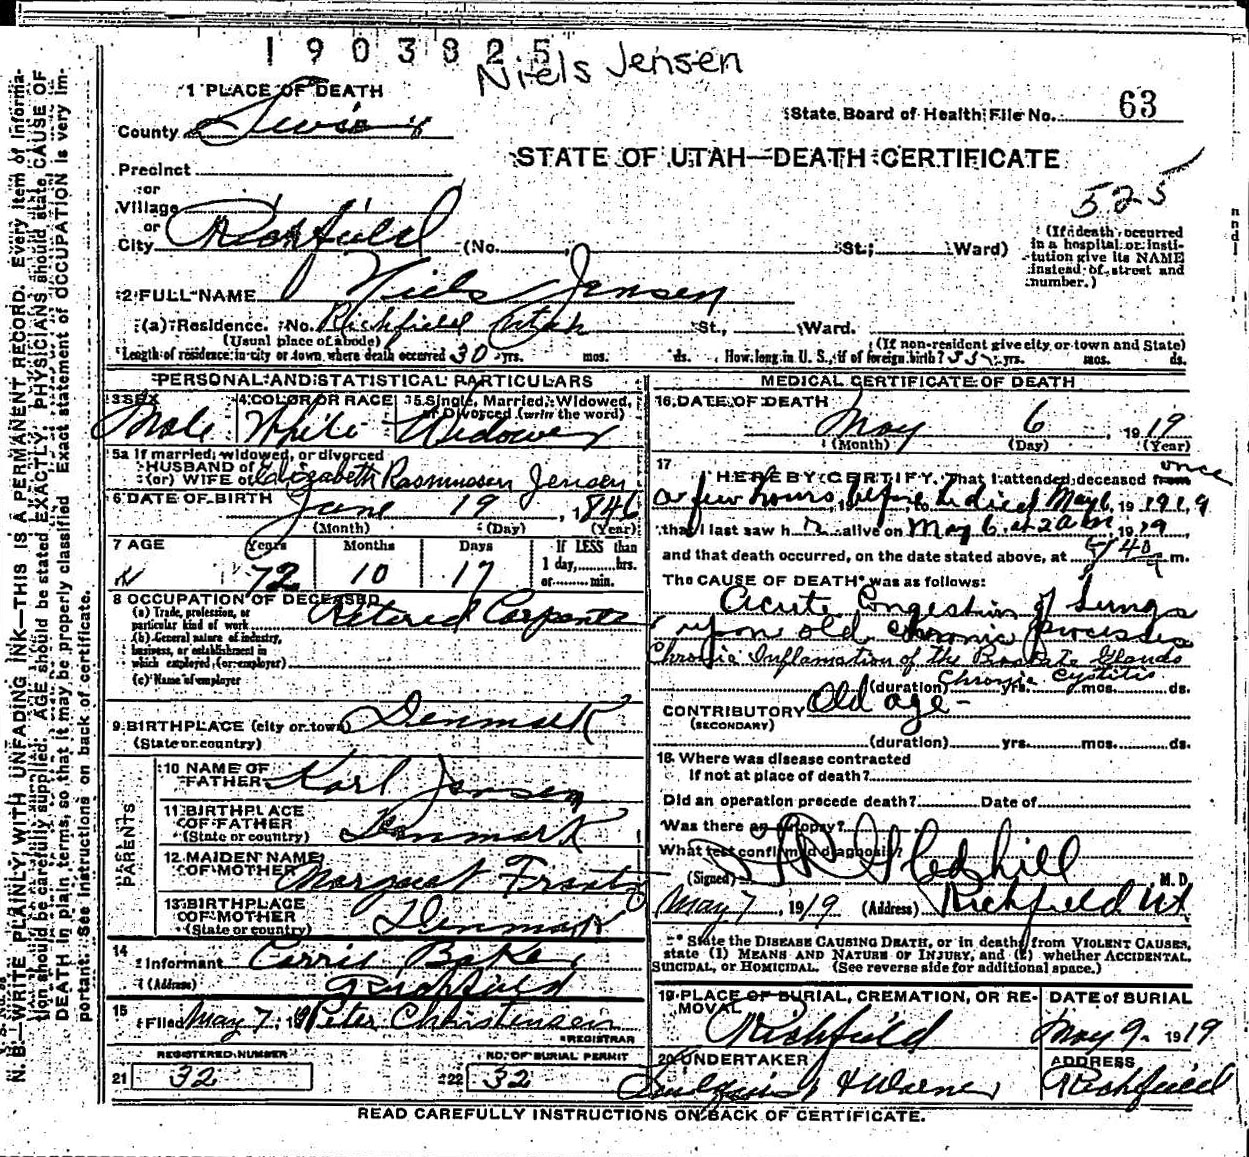 1903825
Niels Jensen
1 PLACE OF DEATH
County Sevier
State Board of Health File No. 63
STATE OF UTAH—DEATH CERTIFICATE
Precinct
or
Village
525
or
City Richfield (No. St.; Ward)
(If death occurred in a hospital or institution give its NAME instead of street and number.)
2 FULL NAME Niels Jensen
(a) Residence. No. Richfield Utah St., Ward.
(Usual place of abode) (If non-resident give city or town and State)
Length of residence in city or town where death occurred 30 yrs. mos. ds. How long in U. S., if of foreign birth? 55 yrs. mos. ds.
PERSONAL AND STATISTICAL PARTICULARS
3 SEX 4 COLOR OR RACE 5 Single, Married, Widowed, or Divorced (write the word)
Male White Widower
5a If married, widowed, or divorced
HUSBAND of
(or) WIFE of Elizabeth Rasmussen Jensen
6 DATE OF BIRTH June 19, 1846
(Month) (Day) (Year)
7 AGE Years Months Days If LESS than
1 day, hrs.
72 10 17 or min.
8 OCCUPATION OF DECEASED Retered Carpenter
(a) Trade, profession, or
particular kind of work
(b) General nature of industry,
business, or establishment in
which employed (or employer)
(c) Name of employer
9 BIRTHPLACE (city or town) Denmark
(State or country)
PARENTS
10 NAME OF
FATHER Karl Jensen
11 BIRTHPLACE
OF FATHER
(State or country) Denmark
12 MAIDEN NAME
OF MOTHER Margaret
13 BIRTHPLACE
OF MOTHER
(State or country) Denmark
14
Informant Carrie Baker
(Address) Richfield
15
Filed May 7, 19 Peter Christensen
REGISTRAR
REGISTERED NUMBER NO. OF BURIAL PERMIT
21 32 22 32
MEDICAL CERTIFICATE OF DEATH
16 DATE OF DEATH
May 6, 1919
(Month) (Day) (Year)
17 once
I HEREBY CERTIFY, That I attended deceased from
a few hours before he died May 6, 1919
that I last saw h alive on May 6 at 2 am 1919
and that death occurred, on the date stated above, at m.
The CAUSE OF DEATH* was as follows:
Acute Congestion of Lungs
upon old chronic processes
Chronic Inflamation of the Prostate Glands
Chronic Cystitis
(duration) yrs. mos. ds.
CONTRIBUTORY Old age -
(SECONDARY)
(duration) yrs. mos. ds.
18 Where was disease contracted
if not at place of death?
Did an operation precede death? Date of
Was there an autopsy?
What test confirmed diagnosis?
(Signed) Gledhill M. D.
May 7, 1919 (Address) Richfield Ut
* State the DISEASE CAUSING DEATH, or in deaths from VIOLENT CAUSES,
state (1) MEANS AND NATURE OF INJURY, and (2) whether ACCIDENTAL,
SUICIDAL, or HOMICIDAL. (See reverse side for additional space.)
19 PLACE OF BURIAL, CREMATION, OR REMOVAL DATE of BURIAL
Richfield May 9, 1919
20 UNDERTAKER ADDRESS
& Warner Richfield
READ CAREFULLY INSTRUCTIONS ON BACK OF CERTIFICATE.
N. B.—WRITE PLAINLY, WITH UNFADING INK—THIS IS A PERMANENT RECORD. Every item of information
should be carefully supplied. AGE should be stated EXACTLY. PHYSICIANS should state CAUSE OF
DEATH in plain terms, so that it may be properly classified. Exact statement of OCCUPATION is very important.
See instructions on back of certificate.